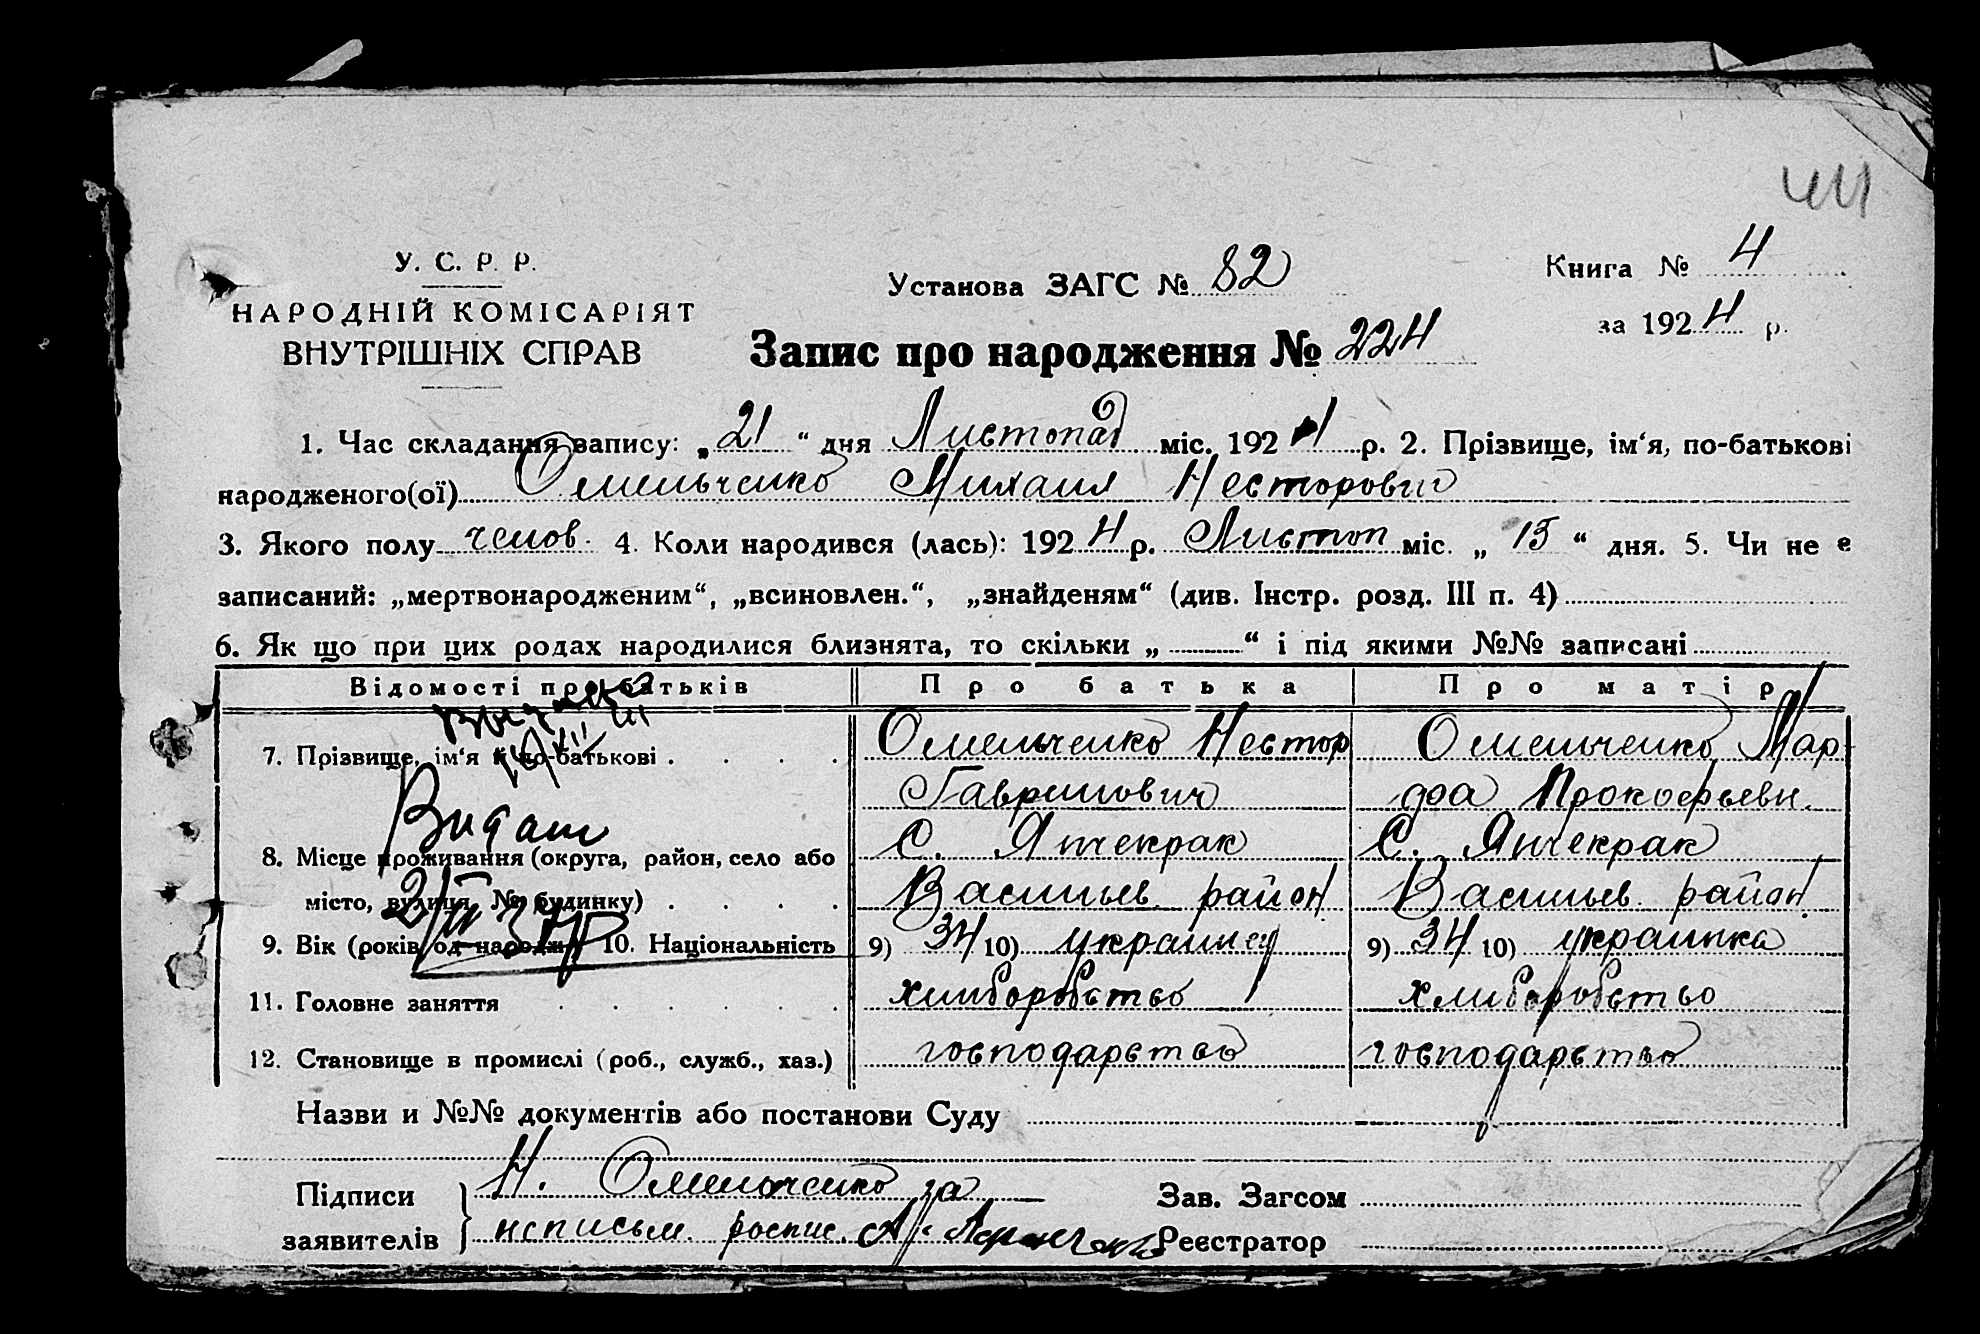 441
У. С. Р. Р.
НАРОДНІЙ КОМІСАРІЯТ
ВНУТРІШНІХ СПРАВ
Установа ЗАГС № 82
Книга № 4
за 1924 р.
Запис про народження № 224
1. Час складання запису: „21“ дня Листопад міс. 1924 р. 2. Прізвище, ім‘я, по-батькові
народженого(ої) Омельченко Михаил Несторович
3. Якого полу челов. 4. Коли народився (лась): 1924 р. Листоп міс. „15“ дня. 5. Чи не є
записаний: „мертвонародженим“, „всиновлен.“, „знайденям“ (див. Інстр. розд. III п. 4)
6. Як що при цих родах народилися близнята, то скільки „ “ і під якими №№ записані
Відомості про батьків
Про батька
Про матір
7. Прізвище, ім‘я й по-батькові
Омельченко Нестор
Гаврилович
Омельченко Мар-
фа Прокофьевн.
Выдан
8. Місце проживання (округа, район, село або
місто, вулиця, № будинку)
С. Янчекрак
Васильев. район.
С. Янчекрак
Васильев. район.
9. Вік (років од народж.) 10. Національність
9) 34 10) украинец
9) 34 10) украинка
11. Головне заняття
хлиборобство
хлиборобство
12. Становище в промислі (роб., служб., хаз.)
господарство
господарство
Назви и №№ документів або постанови Суду
Підписи
заявителів
Н. Омельченко за
неписьм. роспис. А.
Зав. Загсом
Реєстратор